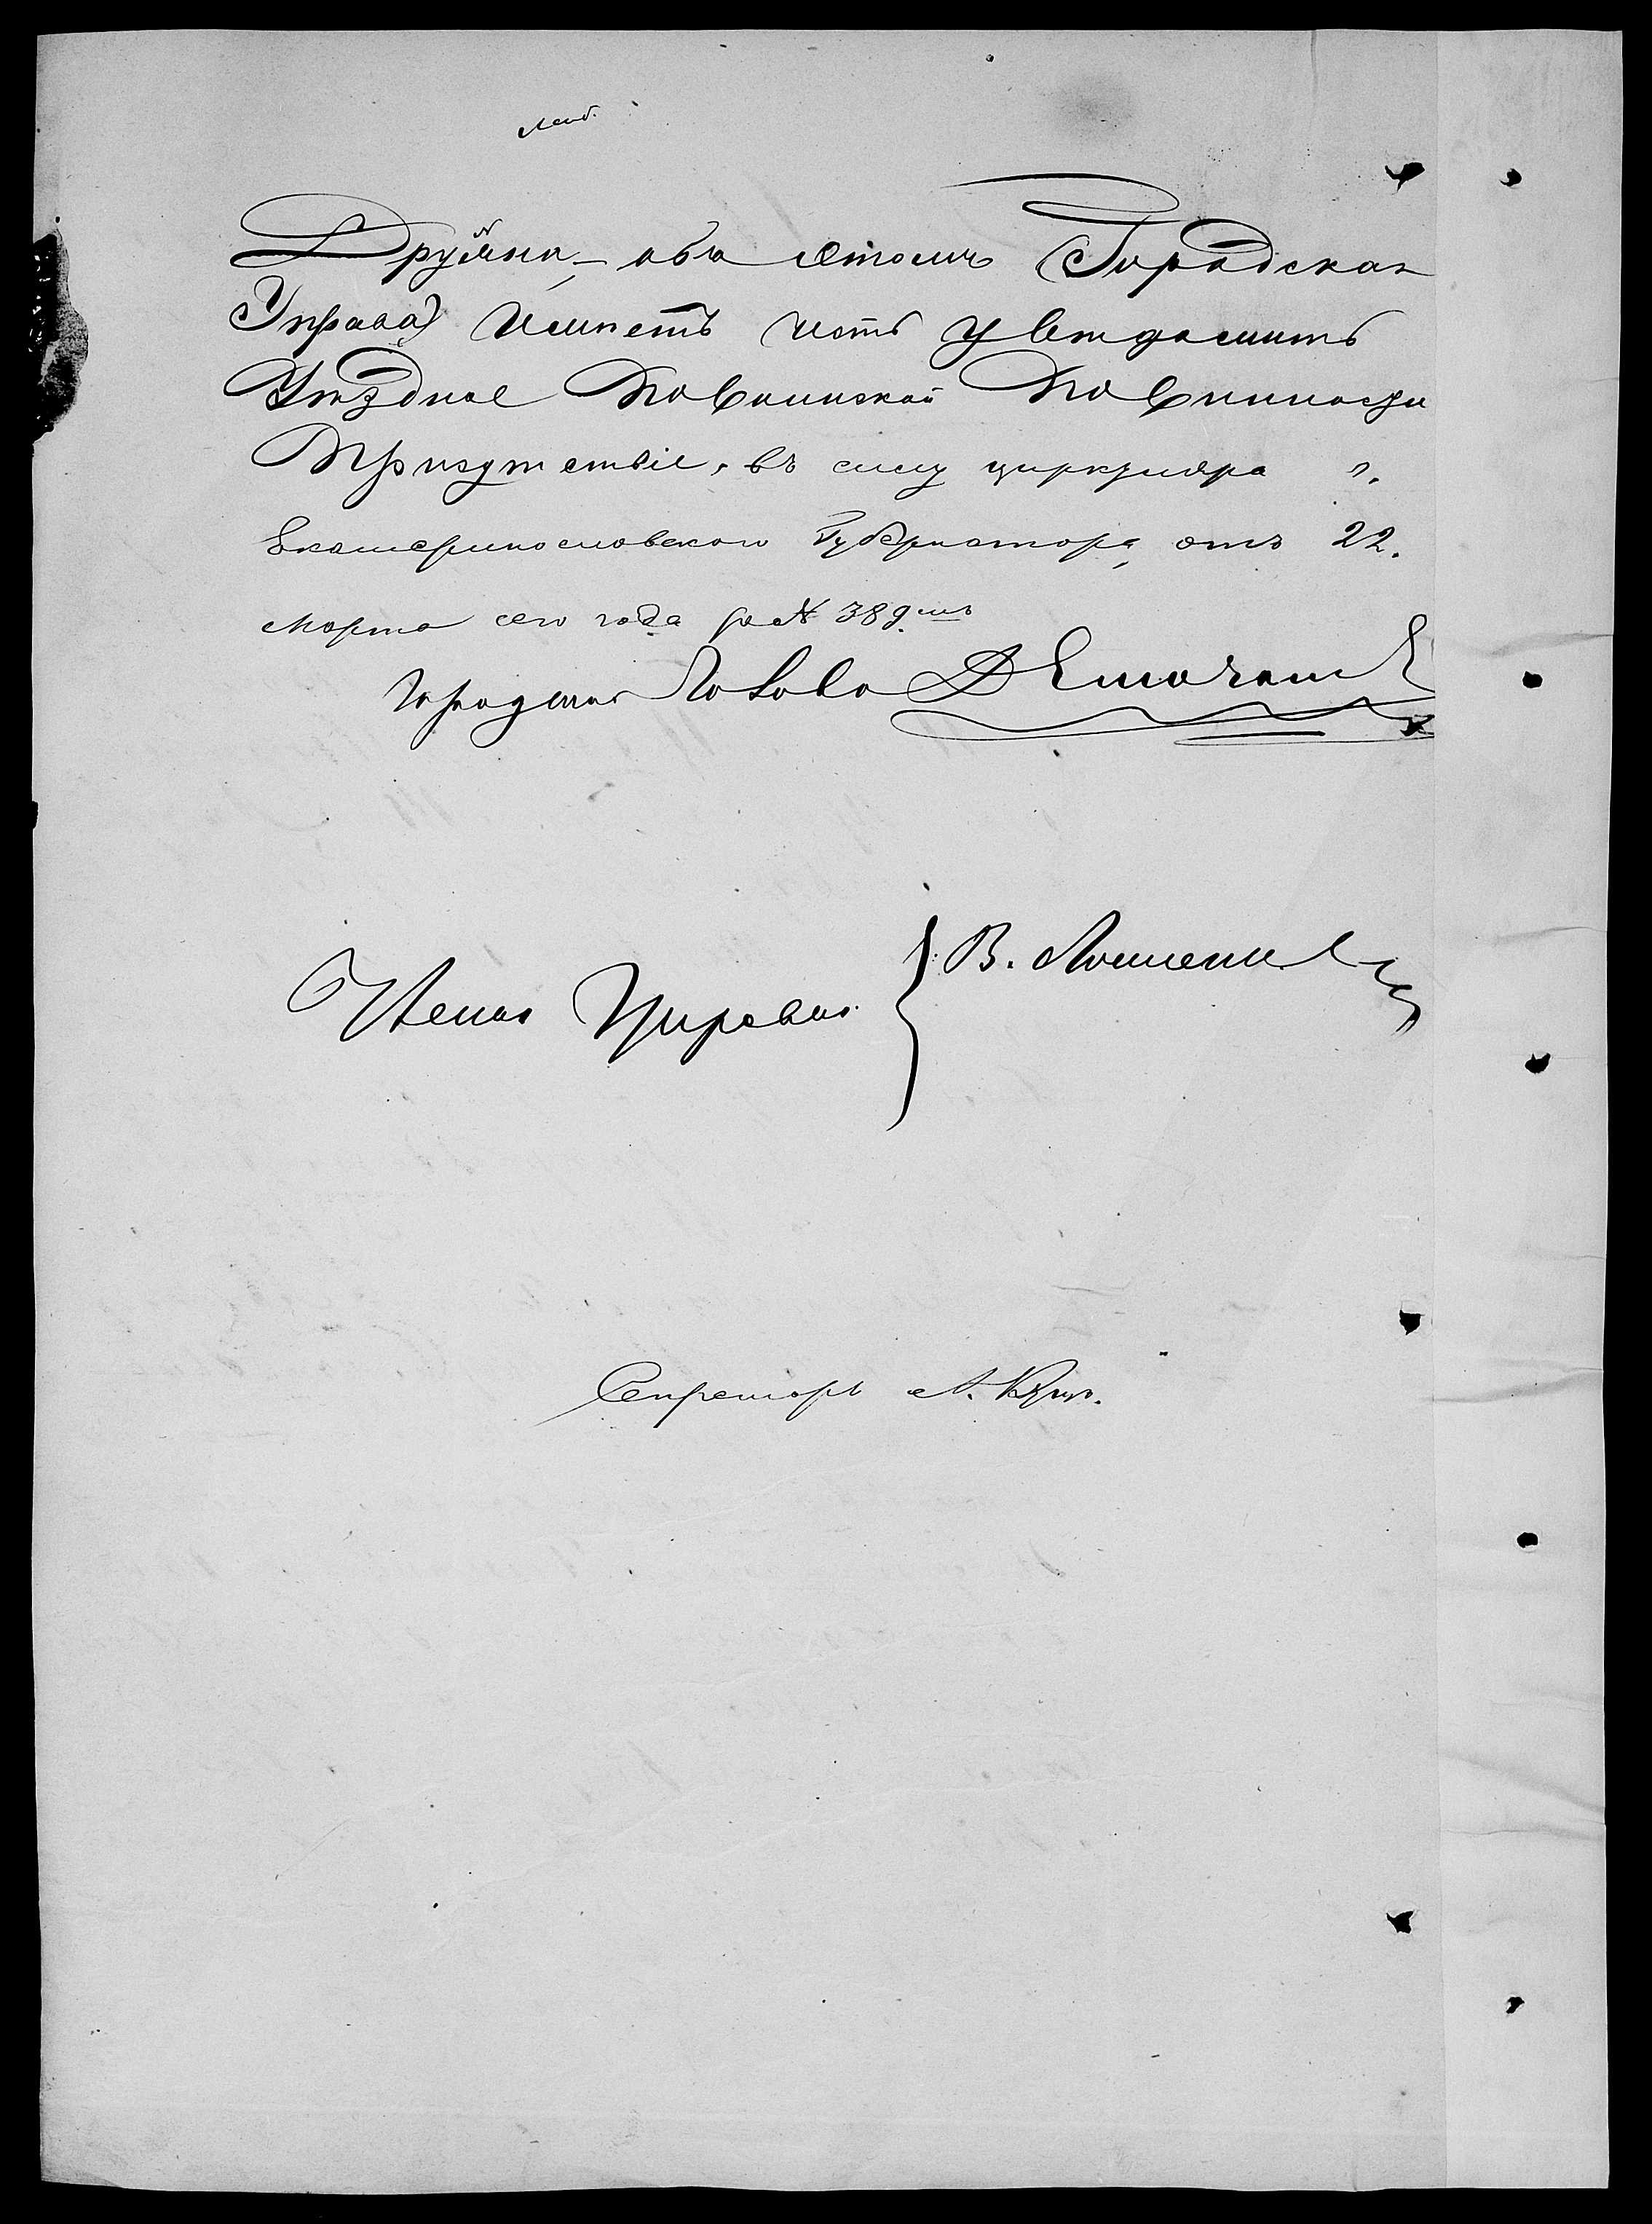 объ этомъ Городская
Управа имѣетъ честь увѣдомить
Уѣздное По Воинской Повинности
Присутствіе, въ силу циркуляра г.
Екатеринославскаго Губернатора, отъ 22.
Марта сего года за №
Городской Голова
Члены Управы } В.
Секретарь А.